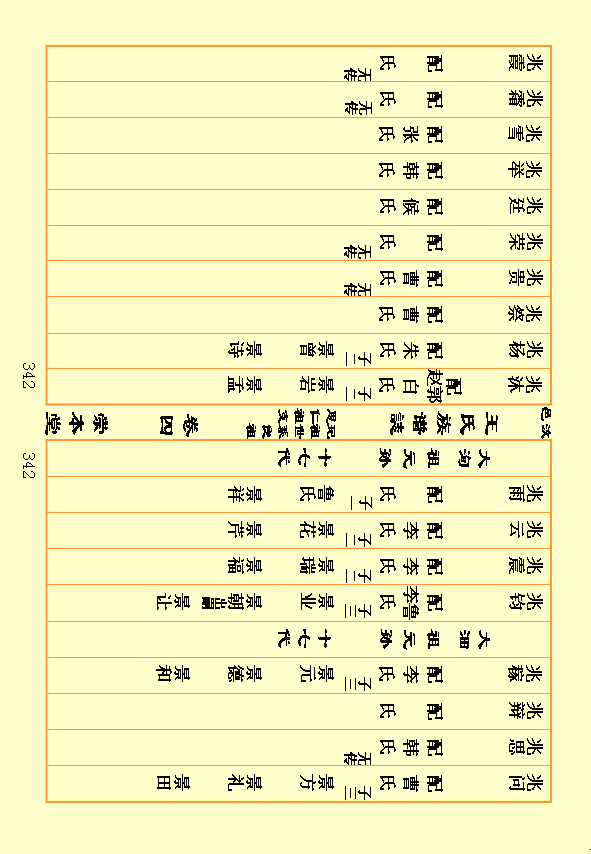 兆霞 配 氏 无传
兆霜 配 氏 无传
兆雪 配张氏
兆举 配韩氏
兆廷 配候氏
兆荣 配 氏 无传
兆贵 配曹氏 无传
兆祭 配曹氏
兆杨 配朱氏 子二 景曾 景诗
兆沐 配赵郭白氏 子二 景岩 景孟
342
汶邑 王氏族谱誌 卷四 崇本堂
342
大洵祖元孙 十七代
兆雨 配 氏 子一 鲁氏 景祥
兆云 配李氏 子二 景花 景芹
兆震 配李氏 子二 景瑞 景福
兆钧 配李鲁氏 子三 景业 景朝出嗣 景让
大油祖元孙 十七代
兆稼 配李氏 子三 景元 景德 景和
兆辩 配 氏
兆思 配韩氏 无传
兆问 配曹氏 子三 景方 景礼 景田